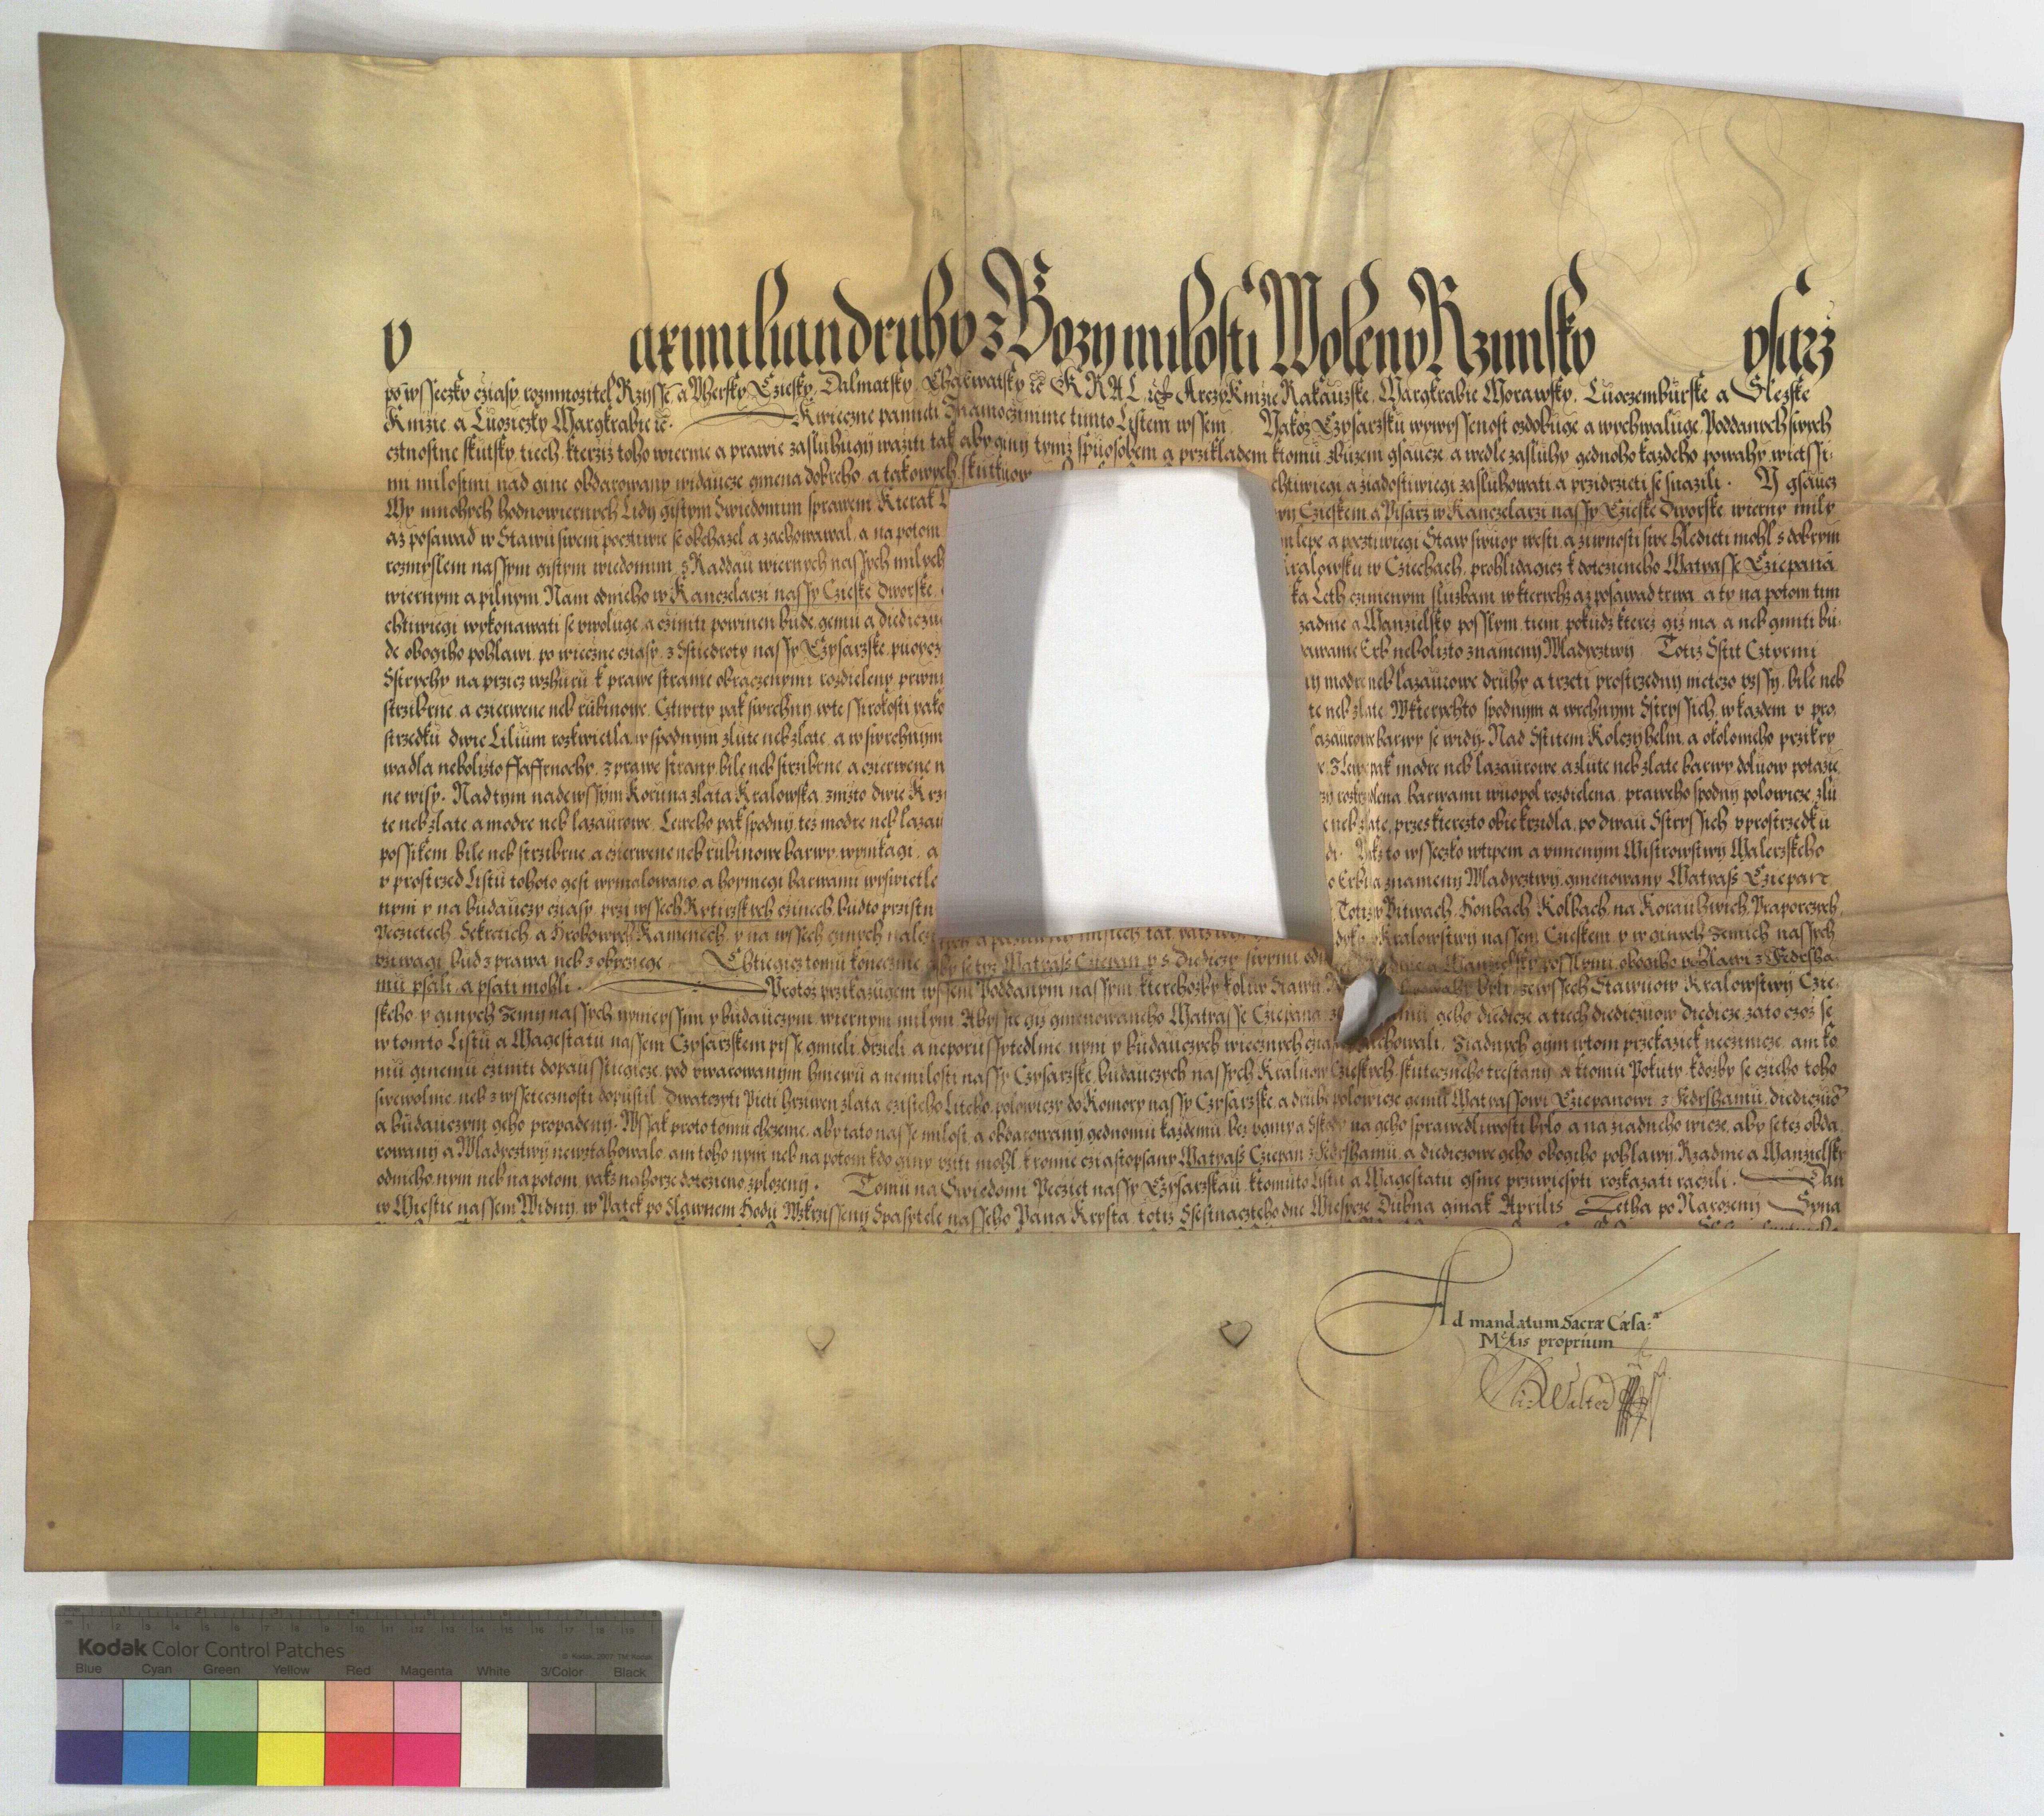 aximilian druhy z Bozy milosti Woleny Rzimsky ysarz
po wsseczky cziasy rozmnozitel Rzysse, a Uhersky, Cziesky, Dalmatsky, Charwatsky ic̃ KRAL, Arczy Knize Rakauzske, Margkrabie Morawsky, Lucczembürske a Slezske
Knize, a Luoziczky Margkrabie ic̃. K wieczne pamieti Znamo czinime timto Listem wssem Yakoz Czysarzskü wywyssenost ozdobüge a wychwalüge Poddanych swych
cztnostne skütky, tiech kterziz toho wiernie a prawie zaslühügij waziti tak aby giny tymz spüosobem a przikladem k tomü zbüzeni gsaucze, a wedle zaslühy gednoho kazdeho powahy wietssi
mi milostmi nad gine obdarowany widaucze gmena dobreho, a takowych skütküow chtiwiegi a ziadostiwiegi zaslühowati a przidrzeti se snazili. Y gsaucz
My mnohych hodnowiernych Lidy gistym Swiedomim sprawem Kterak wy Czieskem, a Pisarz w Kanczelarzi nassy Czieske Dworske, wierny mily
az posawad w Stawü swem pocztiwie se obchazel a zachowawal, a na potom lepe a pocztiwiegi Staw swüoy westi, a ziwnosti swe hledieti mohl s dobrym
rozmyslem nassym gistym wiedomim, s Raddau wiernych nassych milych Kralowskü w Cziechach, prohlidagicz k doteczieneho Matyasse Cziepana
wiernym a pilnym Nam od nieho w Kanczelarzi nassy Czieske dworske, Leth czinienym slüzbam, w kterychz az posawad trwa, a ty na potom tim
chtiwiegi wykonawati se uwolüge, a cziniti powinen büde, gemü a diedicz zadnie a Manzielsky possylym, tiem poküdz kterez giz ma, a neb gmiti bü-
de obogiho pohlawi, po wieczne cziasy, z Sstiedroty nassy Czysarzske Erb nebolizto znameny Wladycztwy Totiz Sstit Cztyrmi
Sstrychy na przicz wzhürü k prawe stranie obraczenymi rozdieleny prwny modre neb lazaürowe drühy a trzeti prostrzedny bile neb
strzibrne, a czierwene neb rübinowe, Cztwrty pak swrchny wte ssirokosti yako neb zlate. W kterychto spodnym a wrchnym Sstryssich, w kazdem v pro
strzedkü dwie Lilium rozkwietla, w spodnym zlüte neb zlate, a w swrchnym lazaürowe barwy se widy. Nad Sstitem Kolczy helm, a okolo nieho przikry
wadla nebolizto ffaffrnochy, z prawe strany bile neb strzibrne, a czierwene z Lewe pak modre neb lazaürowe a zlüte neb zlate barwy doluow potazie
ne wisy. Nad tym nadewssym Korüna zlata Kralowska, z nizto dwie Krz barwami wnopol rozdielena, praweho spodny polowicze zlü
te neb zlate a modre neb lazaürowe, Leweho pak spodny tez modre neb lazau neb zlate, przes kterezto obie krzidla, po dwau Sstryssich v prostrzedkü
possikem bile neb strzibrne, a czierwene neb rübinowe barwy wynikagi, a Yakz to wsseczko wtipem a vmienym Mistrowstwy Malerzskeho
v prostrzed Listü tohoto gest wymalowano, a hoyniegi barwami wyswietle a znameny Wladycztwy, gmenowany Matyass Cziepan
nyni y na büdaüczy cziasy, przi wssech Rytirzskych czinech, büdto przistü Totiz w Bitwach, Honbach, Kolbach, na Koraühwich, Praporczych,
Peczietech, Sekretich, a Hrobowych Kamenech, y na wssech ginych nalez Kralowstwy nassem Czieskem, y w ginych Zemich nassych
vziwagi büd z prawa neb z obyczege Chtiegicz tomü konecznie aby se tyz Matyass Cziepan y s Diediczy swymi Manzielsky possylymi, obogiho pohlawi z Gedrsha
mü psali, a psati mohli. Protoz przikazügem wssem Poddanym nassym kterehozby koliw Stawü byli, ze wssech Stawuow Kralowstwy Czie-
skeho, y ginych Zemy nassych nyniegssim y büdaüczym, wiernym milym Abysste giz gmenowaneho Matyasse Cziepana geho diedicze a tiech diediczuow diedicze zato czoz se
w tomto Listü a Magestatü nassem Czysarzskem pisse gmieli, drzeli, a neporussytedlnie, nyni y büdaüczych wiecznych zachowali, ziadnych gym w tom przekaziek neczinicze, ani ko
mü ginemü cziniti dopaüsstiegicze, pod vwarowanym hniewü a nemilosti nassy Czysarzske, büdaüczych nassych Kraluow Czieskych, skütecznieho trestany a k tomü Pokuty, kdozby se czieho toho
swewolnie, neb z wssetecznosti dopüstil, Dwatczyti Pieti hrziwen zlata czisteho Liteho, polowiczy do Komory nassy Czysarzske, a drühe polowicze gemü Matyassowi Cziepanowi z Gedrshamü, diediczuo
a büdaüczym geho propadeny. Wssak proto tomü chczeme, aby tato nasse milost, a obdarowany gednomü kazdemü bez vgmy a sskody na geho sprawedliwosti bylo, a na ziadneho wicze, aby se tez obda
rowany a Wladycztwy newztahowalo, ani toho nyni neb na potom kdo giny vziti mohl, kromie cziastopsany Matyass Cziepan z Gedrshamü, a diediczowe geho obogiho pohlawy Rzadnie a Manzielsky
od nieho, nyni neb na potom, yakz nahorze doteczieno, zplozeny. Tomü na Swiedomi Pecziet nassy Czysarzskaü k tomüto Listü a Magestatü gsme przywiesyti rozkazati raczili. Dan
w Miestie nassem Widny, w Patek po Slawnem Hodü Wzkrzisseny Spasytele nasseho Pana Krysta, totiz Ssestnaczteho dne Miesycze Dübna ginak Aprilis Letha po Narozeny Syna
Ad mandatum Sacræ Cæsa:ᵃᵉ
Mᵗⁱˢ proprium
Walter
Kodak Color Control Patches
© Kodak, 2007 TM: Kodak
Blue Cyan Green Yellow Red Magenta White 3/Color Black